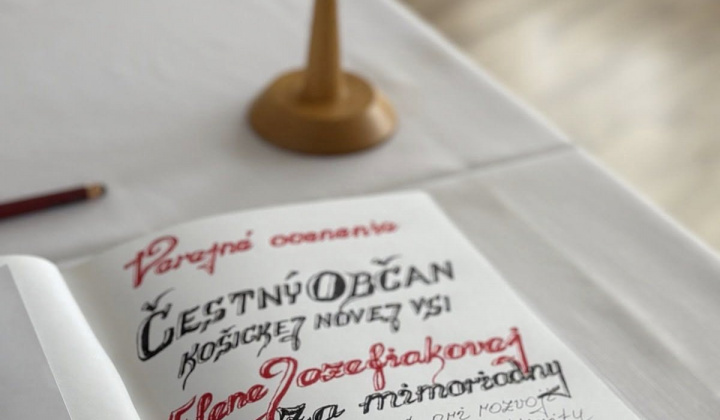 Verejné ocenenie
ČESTNÝ OBČAN
KOŠICKEJ NOVEJ VSI
Elene Jozefiakovej
za mimoriadny
pri rozvoji